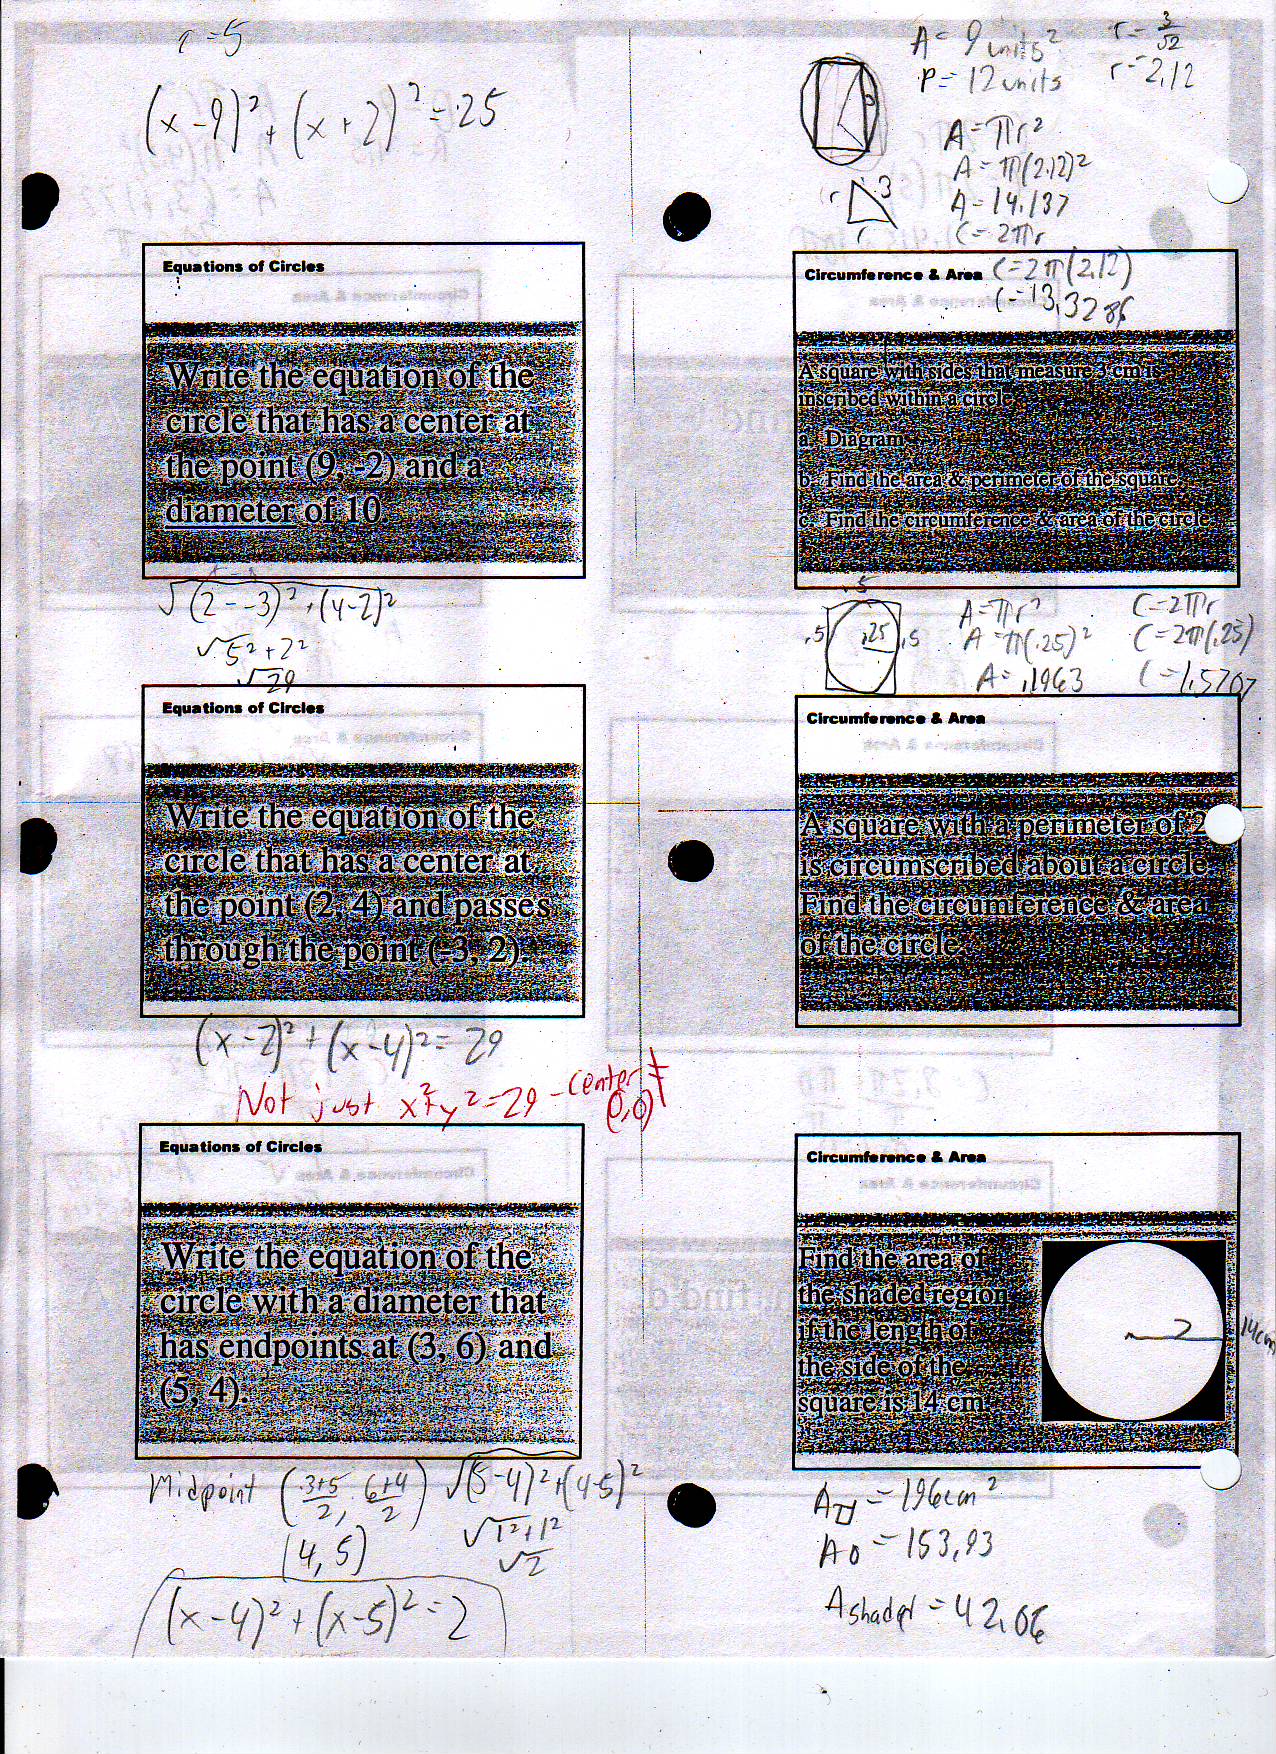 r=5
(x-9)²+(x+2)²=25
Equations of Circles
Write the equation of the
circle that has a center at
the point (9, -2) and a
diameter of 10
√(2--3)²+(4-2)²
√5²+2²
√29
Equations of Circles
Write the equation of the
circle that has a center at
the point (2, 4) and passes
through the point (-3, 2).
(x-2)²+(x-4)²=29
Not just x²+y²=29 - center ≠
(0,0)
Equations of Circles
Write the equation of the
circle with a diameter that
has endpoints at (3, 6) and
(5, 4).
Midpoint (3+5/2, 6+4/2) √(5-4)²+(4-5)²
√1²+1²
(4,5) √2
(x-4)²+(x-5)²=2
A=9 units² r=3/√2
P=12 units r=2.12
A=πr²
A=π(2.12)²
r 3
A=14.137
r
C=2πr
Circumference & Area C=2π(2.12)
C=13.3286
A square with sides that measure 3 cm is
inscribed within a circle.
a. Diagram
b. Find the area & perimeter of the square.
c. Find the circumference & area of the circle.
.5
A=πr² C=2πr
.5 .25 .5 A=π(.25)² C=2π(.25)
A=.1963 C=1.5707
Circumference & Area
A square with a perimeter of 2
is circumscribed about a circle.
Find the circumference & area
of the circle.
Circumference & Area
Find the area of
the shaded region
if the length of
the side of the
square is 14 cm.
7 14cm
A□=196cm²
A○=153.93
Ashaded=42.06